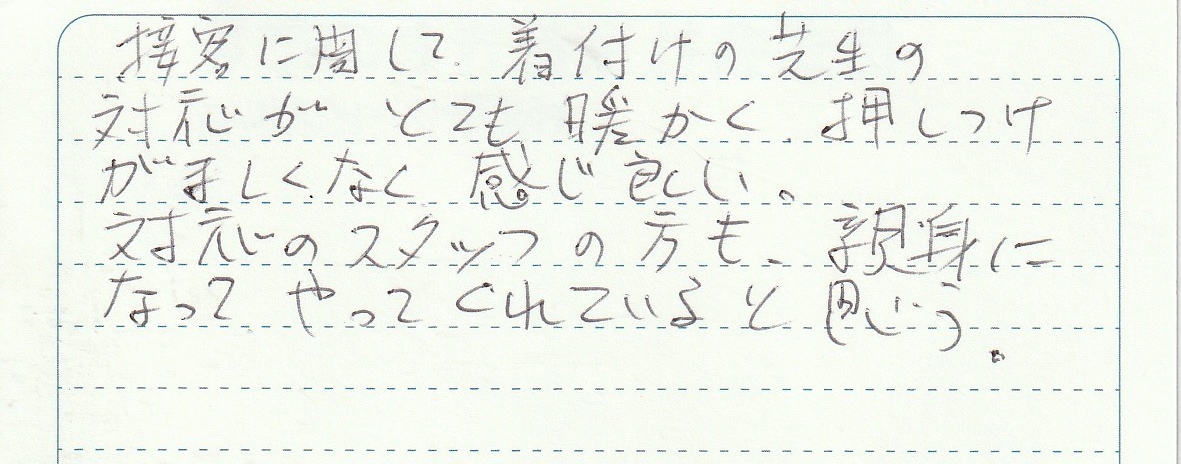 接客に関して、着付けの先生の
対応がとても暖かく、押しつけ
がましくなく、感じ良しい。
対応のスタッフの方も、親身に
なって、やってくれていると思う。